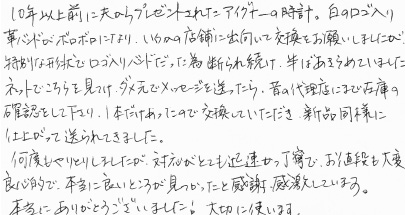 10年以上前に夫からプレゼントされたアイグナーの時計。白のロゴ入り
革バンドがボロボロになり、いくつかの店舗に出向いて交換をお願いしましたが、
特別な形状でロゴ入りバンドだった為断られ続け、半ばあきらめていました
ネットでこちらを見つけ、ダメ元でメッセージを送ったら、昔の代理店にまで在庫の
確認をして下さり、1本だけあったので交換していただき、新品同様に
仕上がって送られてきました。
何度もやりとりしましたが、対応がとても迅速かつ丁寧で、お値段も大変
良心的で、本当に良いところが見つかったと感謝、感激しています。
本当にありがとうございました！大切に使います。